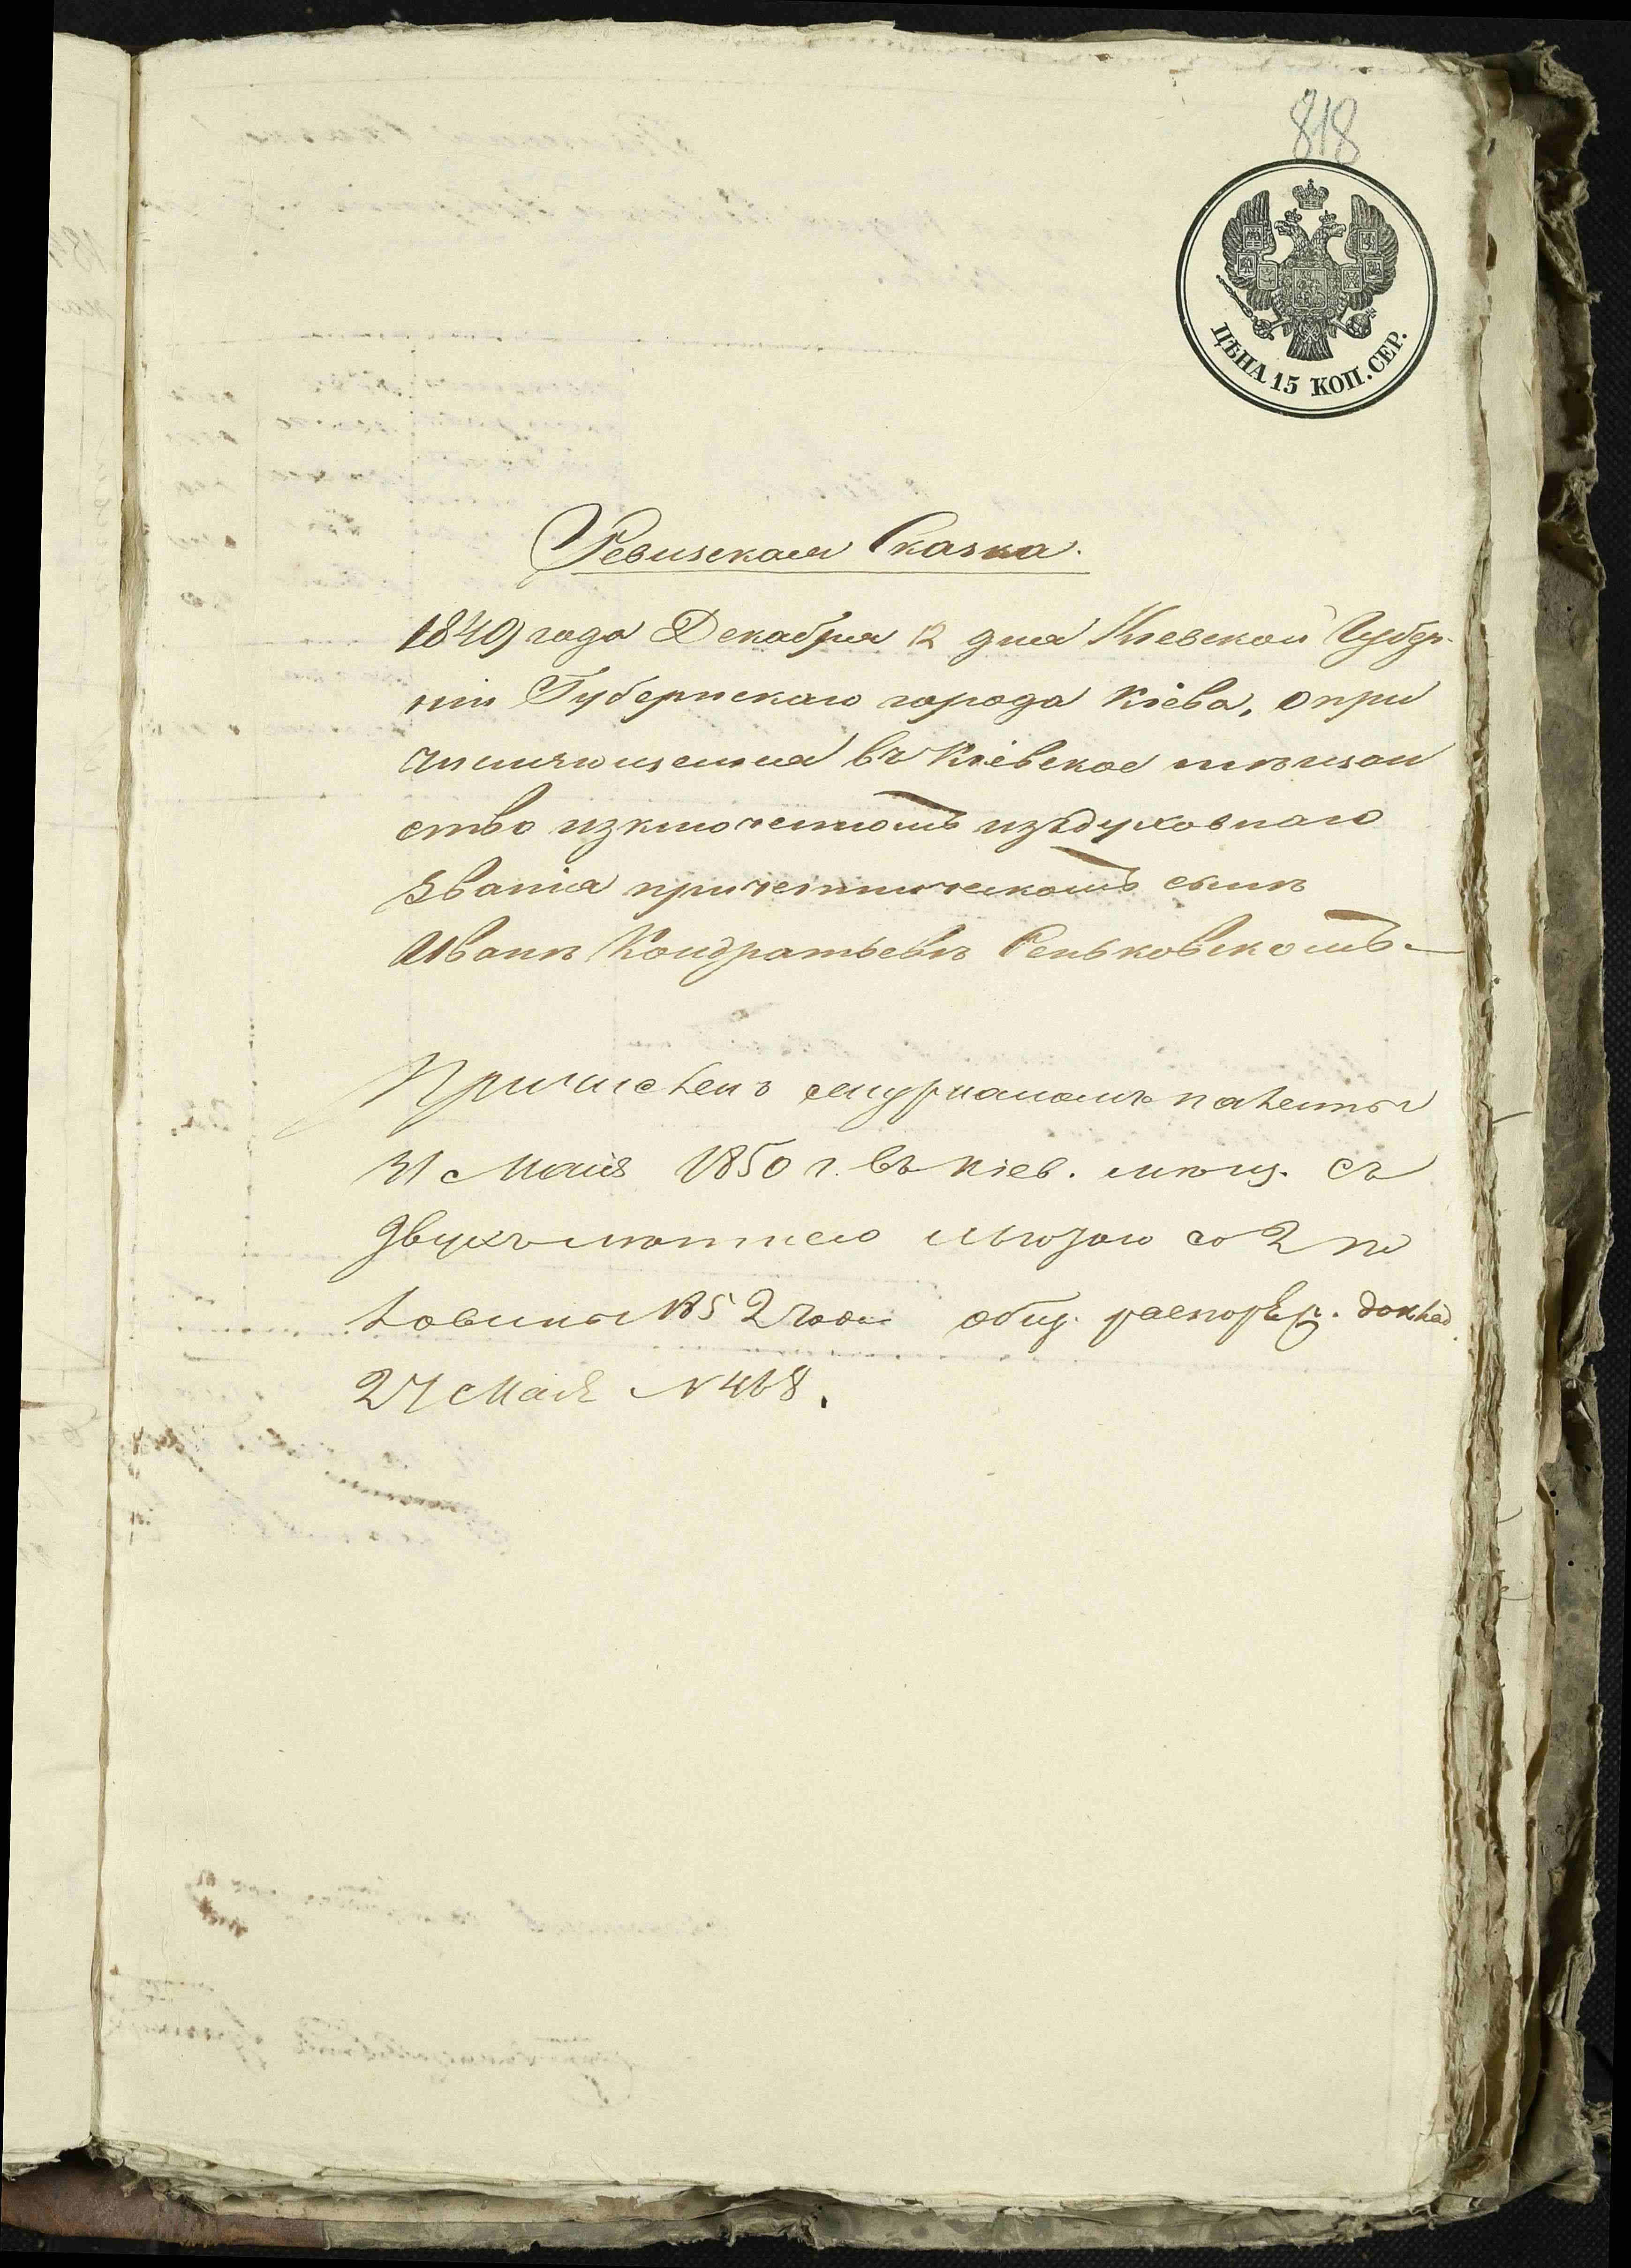 818
ЦѢНА 15 КОП. СЕР.
Ревизская Сказка.
1849 года Декабря 12 дня Кіевской Губер-
ніи Губернскаго города Кіева, о при
числяющемся въ Кіевское мѣщан
ство изключенномъ изъ духовнаго
званія причетническомъ сынѣ
Иванѣ Кондратьевѣ Сеньковскомъ.
Причисленъ съ журналомъ палаты
31 Мая 1850 г. въ Кіев. мѣщ. съ
двухълѣтнею льготою со 2 по
ловины 1852 года общ. распоряд. доклад.
27 Мая N 468.